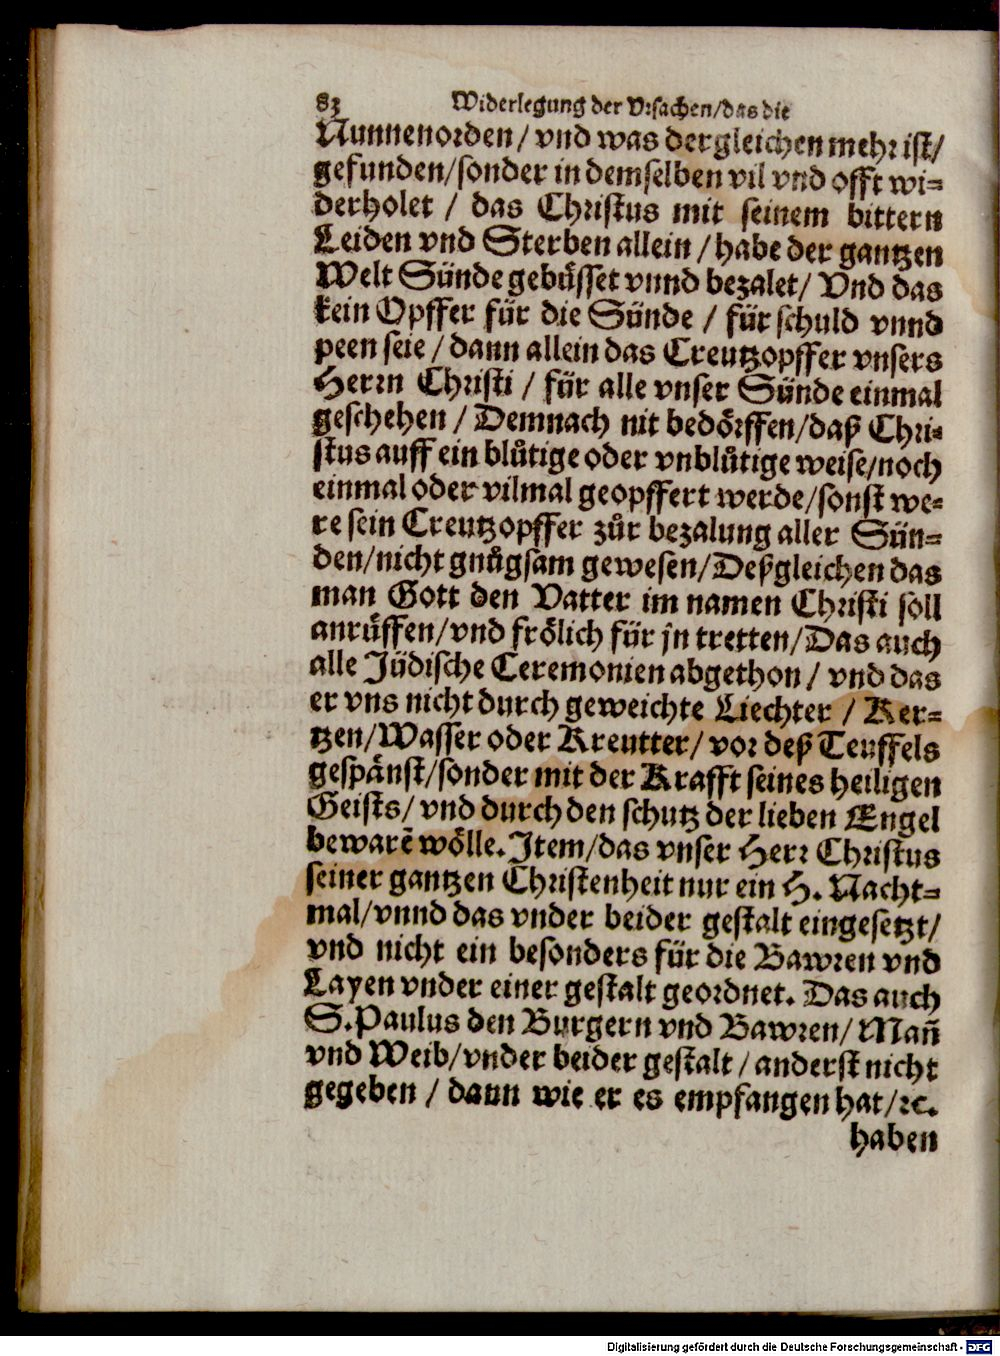 82 Widerlegung der Vrsachen/das die
Nunnenorden / vnd was dergleichen mehr ist/
gefunden/sonder in demselben vil vnd offt wi=
derholet / das Christus mit seinem bittern
Leiden vnd Sterben allein / habe der gantzen
Welt Sünde gebüsset vnnd bezalet/ Vnd das
kein Opffer für die Sünde / für schuld vnnd
peen seie / dann allein das Creutzopffer vnsers
Herrn Christi / für alle vnser Sünde einmal
geschehen / Demnach nit bedörffen/daß Chri=
stus auff ein blůtige oder vnblůtige weise/noch
einmal oder vilmal geopffert werde/sonst we=
re sein Creutzopffer zůr bezalung aller Sün=
den/nicht gnůgsam gewesen/Deßgleichen das
man Gott den Vatter im namen Christi soll
anrüffen/vnd frölich für jn tretten/Das auch
alle Jüdische Ceremonien abgethon / vnd das
er vns nicht durch geweichte Liechter / Ker=
tzen/Wasser oder Kreutter/ vor deß Teuffels
gespänst/sonder mit der Krafft seines heiligen
Geists/ vnd durch den schutz der lieben Engel
bewarē wölle. Item/das vnser Herr Christus
seiner gantzen Christenheit nur ein H. Nacht=
mal/vnnd das vnder beider gestalt eingesetzt/
vnd nicht ein besonders für die Bawren vnd
Layen vnder einer gestalt geordnet. Das auch
S. Paulus den Burgern vnd Bawren/ Mañ
vnd Weib/vnder beider gestalt / anderst nicht
gegeben / dann wie er es empfangen hat/ꝛc.
haben
Digitalisierung gefördert durch die Deutsche Forschungsgemeinschaft - DFG